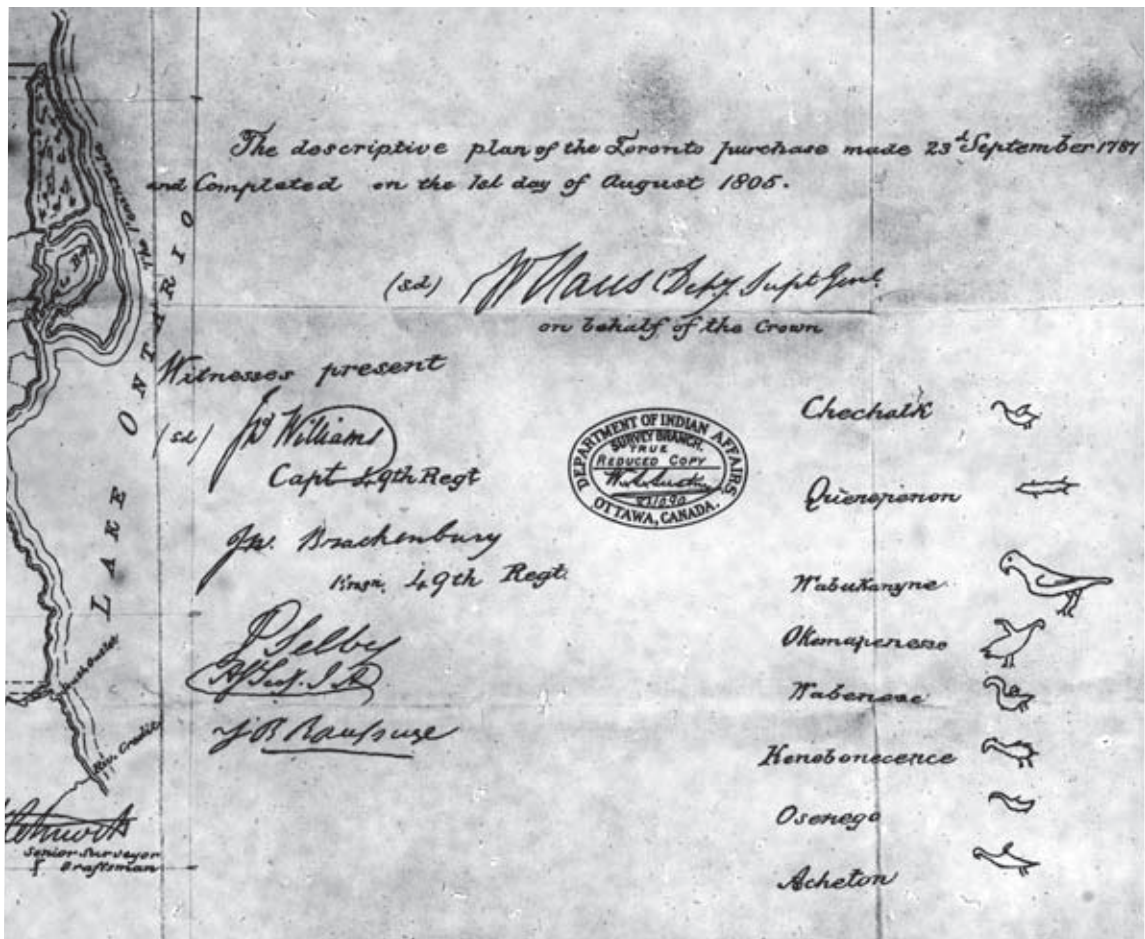 The descriptive plan of the Toronto purchase made 23d September 1787
and Completed on the 1st day of August 1805.
(sd) W Claus Depy Supt Genl.
on behalf of the Crown
Witnesses present
(sd) Jno Williams
Capt 49th Regt
Jno. Brackenbury
Ensn. 49th Regt.
P Selby
J B Rousseau
DEPARTMENT OF INDIAN AFFAIRS
SURVEY BRANCH.
TRUE
REDUCED COPY
OTTAWA, CANADA.
Chechalk
Quieneponon
Wabukanyne
Okemapenesse
Wabenose
Kenebonecence
Osenego
Acheton
LAKE ONTARIO
The Peninsula
River Credit
Senior Surveyor
& Draftsman